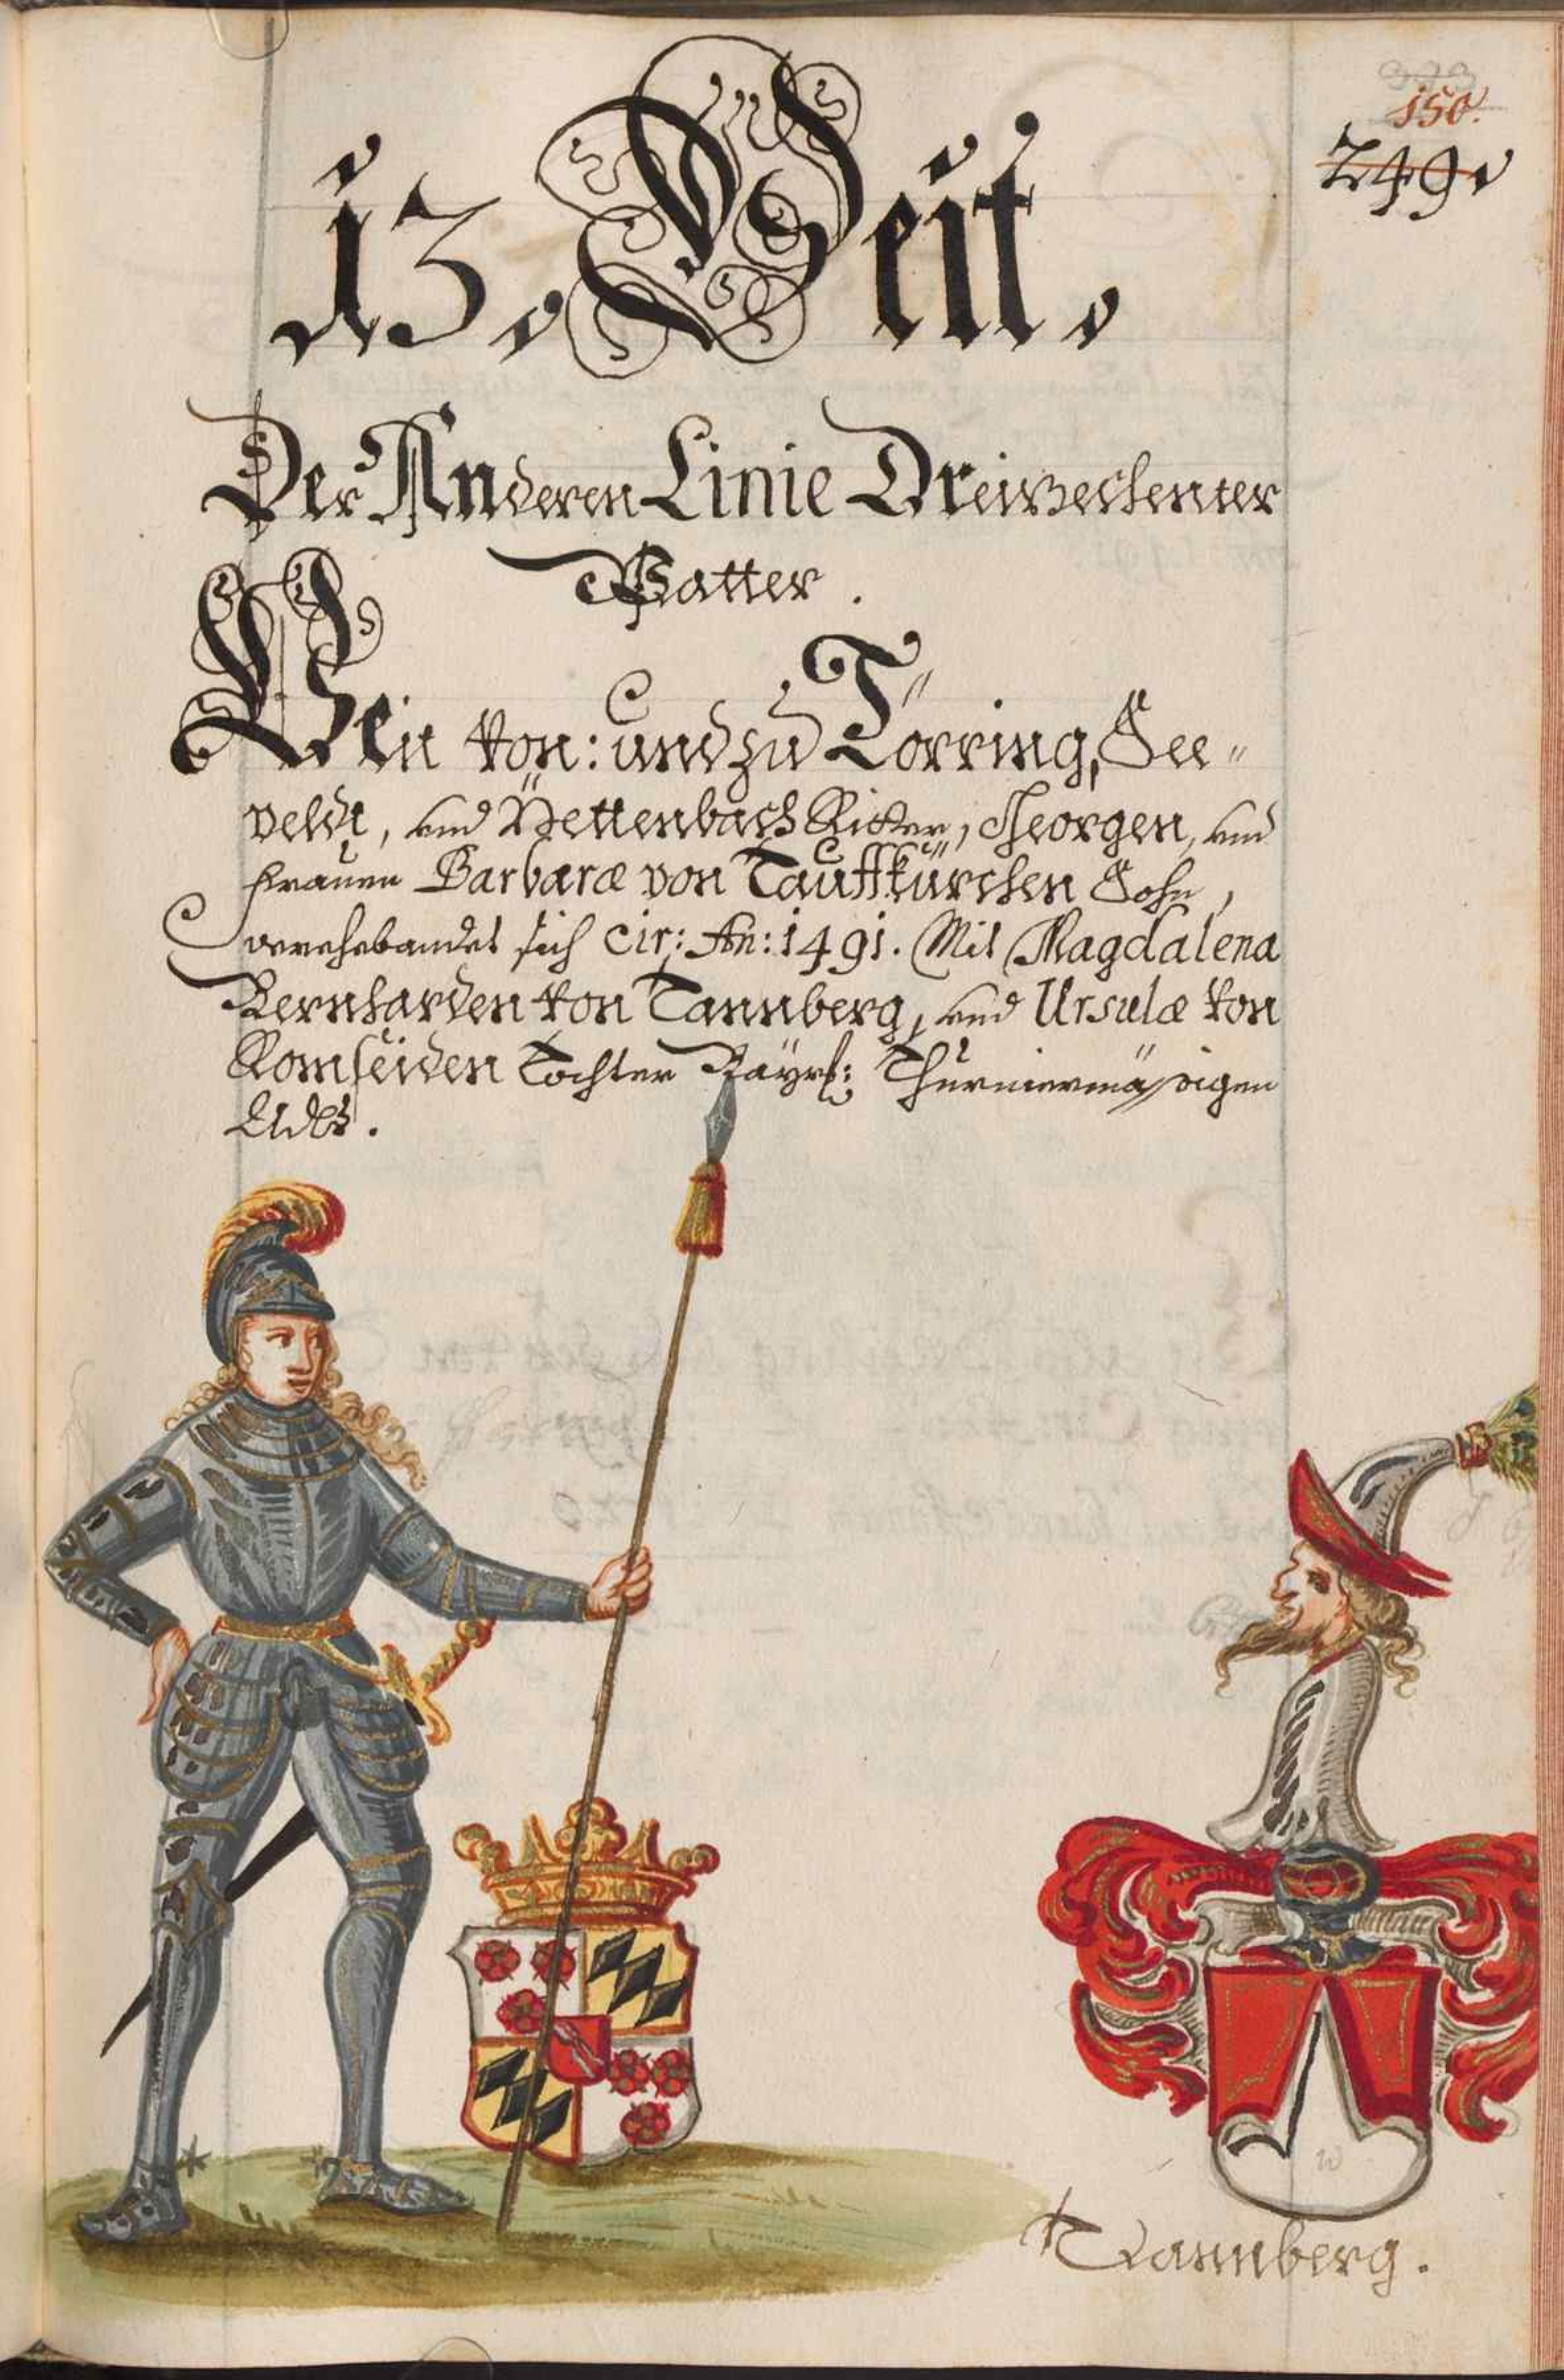 373
150.
249.
13. Veit,
Der Anderen Linie Dreizechenter
Vatter.
Veit von: und zu Törring, See"
veldt, und Pettenbach Ritter, Georgen, und
Frauen Barbaræ von Tauffkürchen Sohn,
verehebandet sich cir: An: 1491. Mit Magdalena
Bernharden von Tannberg, und Ursulæ von
Rohrseiden Tochter Bayrs: Thurniermässigen
Adls.
Tannberg.